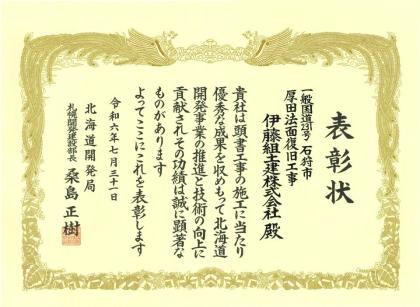 表彰状
一般国道231号 石狩市
厚田法面復旧工事
伊藤組土建株式会社 殿
貴社は頭書工事の施工に当たり
優秀な成果を収めもって北海道
開発事業の推進と技術の向上に
貢献されその功績は誠に顕著な
ものがあります
よってここにこれを表彰します
令和六年七月三十一日
北海道開発局
札幌開発建設部長 桑島正樹